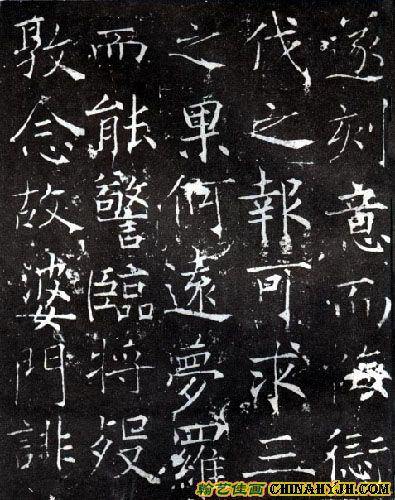 遂刻意而悔愆
伐之報可求三
之果何遠夢羅
而能警臨将殁
敦念故婆門誹
翰艺佳画 CHINAHYJH.COM